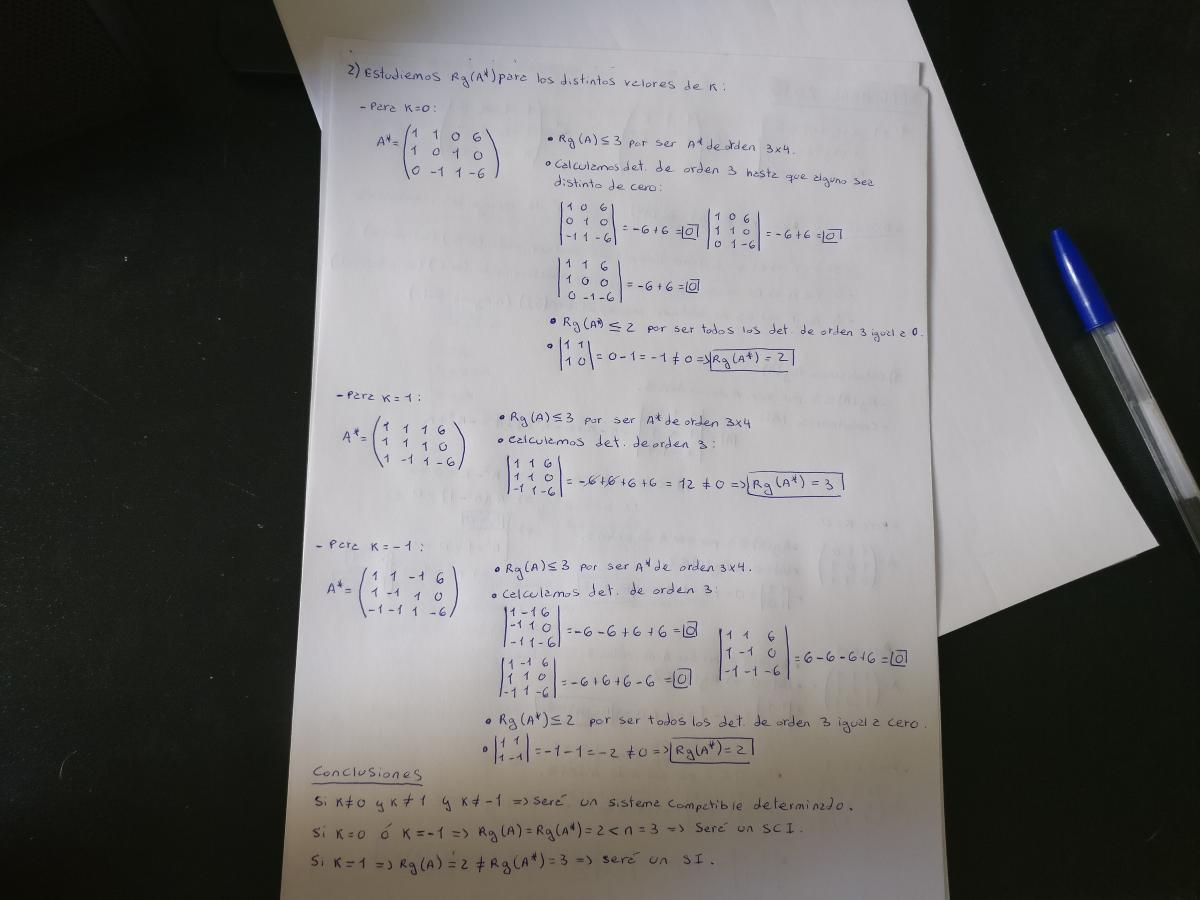 2) Estudiemos Rg(A*) para los distintos valores de K:
- Para K=0:
A*= (1 1 0 6
1 0 1 0
0 -1 1 -6)
• Rg(A) ≤ 3 por ser A* de orden 3x4.
• Calculamos det. de orden 3 hasta que alguno sea
distinto de cero:
|1 0 6
0 1 0
-1 1 -6| = -6+6 = 0
|1 0 6
1 1 0
0 1 -6| = -6+6 = 0
|1 1 6
1 0 0
0 -1 -6| = -6+6 = 0
• Rg(A*) ≤ 2 por ser todos los det. de orden 3 igual a 0.
• |1 1
1 0| = 0-1 = -1 ≠ 0 => Rg(A*) = 2
- Para K=1:
A*= (1 1 1 6
1 1 1 0
1 -1 1 -6)
• Rg(A) ≤ 3 por ser A* de orden 3x4
• Calculamos det. de orden 3:
|1 1 6
1 1 0
-1 1 -6| = -6+6+6+6 = 12 ≠ 0 => Rg(A*) = 3
- Para K=-1:
A*= (1 1 -1 6
1 -1 1 0
-1 -1 1 -6)
• Rg(A) ≤ 3 por ser A* de orden 3x4.
• Calculamos det. de orden 3:
|1 -1 6
-1 1 0
-1 1 -6| = -6-6+6+6 = 0
|1 1 6
1 -1 0
-1 -1 -6| = 6-6-6+6 = 0
|1 -1 6
1 1 0
-1 1 -6| = -6+6+6-6 = 0
• Rg(A*) ≤ 2 por ser todos los det. de orden 3 igual a cero.
• |1 1
1 -1| = -1-1 = -2 ≠ 0 => Rg(A*) = 2
Conclusiones
Si K≠0 y K≠1 y K≠-1 => Será un sistema compatible determinado.
Si K=0 ó K=-1 => Rg(A)=Rg(A*)=2<n=3 => Será un SCI.
Si K=1 => Rg(A)=2 ≠ Rg(A*)=3 => será un SI.